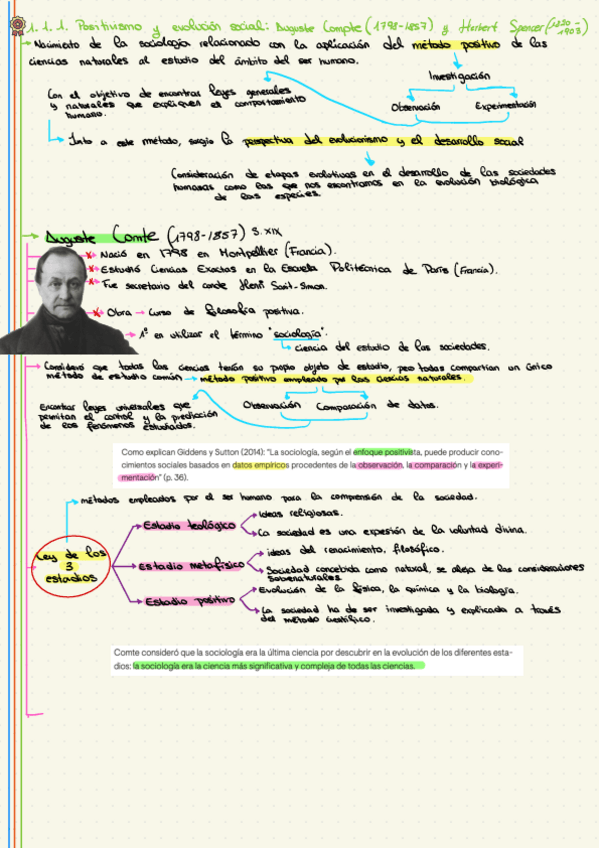 1.1.1. Positivismo y evolución social: Auguste Compte (1798-1857) y Herbert Spencer (1820-1903)
Nacimiento de la sociología relacionado con la aplicación del método positivo de las
ciencias naturales al estudio del ámbito del ser humano.
Investigación
Con el objetivo de encontrar leyes generales
y naturales que expliquen el comportamiento
humano.
Observación
Experimentación
Junto a este método, surgió la perspectiva del evolucionismo y el desarrollo social
Consideración de etapas evolutivas en el desarrollo de las sociedades
humanas como las que nos encontramos en la evolución biológica
de las especies.
Auguste Comte (1798-1857) S. XIX
Nació en 1798 en Montpellier (Francia).
Estudió Ciencias Exactas en la Escuela Politécnica de París (Francia).
Fue secretario del conde Henri Saint-Simon.
Obra → Curso de filosofía positiva.
1º en utilizar el término "sociología".
ciencia del estudio de las sociedades.
Consideró que todas las ciencias tenían su propio objeto de estudio, pero todas compartían un único
método de estudio común → método positivo empleado por las ciencias naturales.
Encontrar leyes universales que
permitan el control y la predicción
de los fenómenos estudiados.
Observación
Comparación de datos.
Como explican Giddens y Sutton (2014): "La sociología, según el enfoque positivista, puede producir cono-
cimientos sociales basados en datos empíricos procedentes de la observación, la comparación y la experi-
mentación" (p. 36).
métodos empleados por el ser humano para la comprensión de la sociedad.
Ley de los
3
estadios
Estadio teológico
Ideas religiosas.
La sociedad es una expresión de la voluntad divina.
Estadio metafísico
ideas del renacimiento, filosófico.
Sociedad concebida como natural, se aleja de las consideraciones
sobrenaturales
Estadio positivo
Evolución de la física, la química y la biología.
La sociedad ha de ser investigada y explicada a través
del método científico.
Comte consideró que la sociología era la última ciencia por descubrir en la evolución de los diferentes esta-
dios: la sociología era la ciencia más significativa y compleja de todas las ciencias.